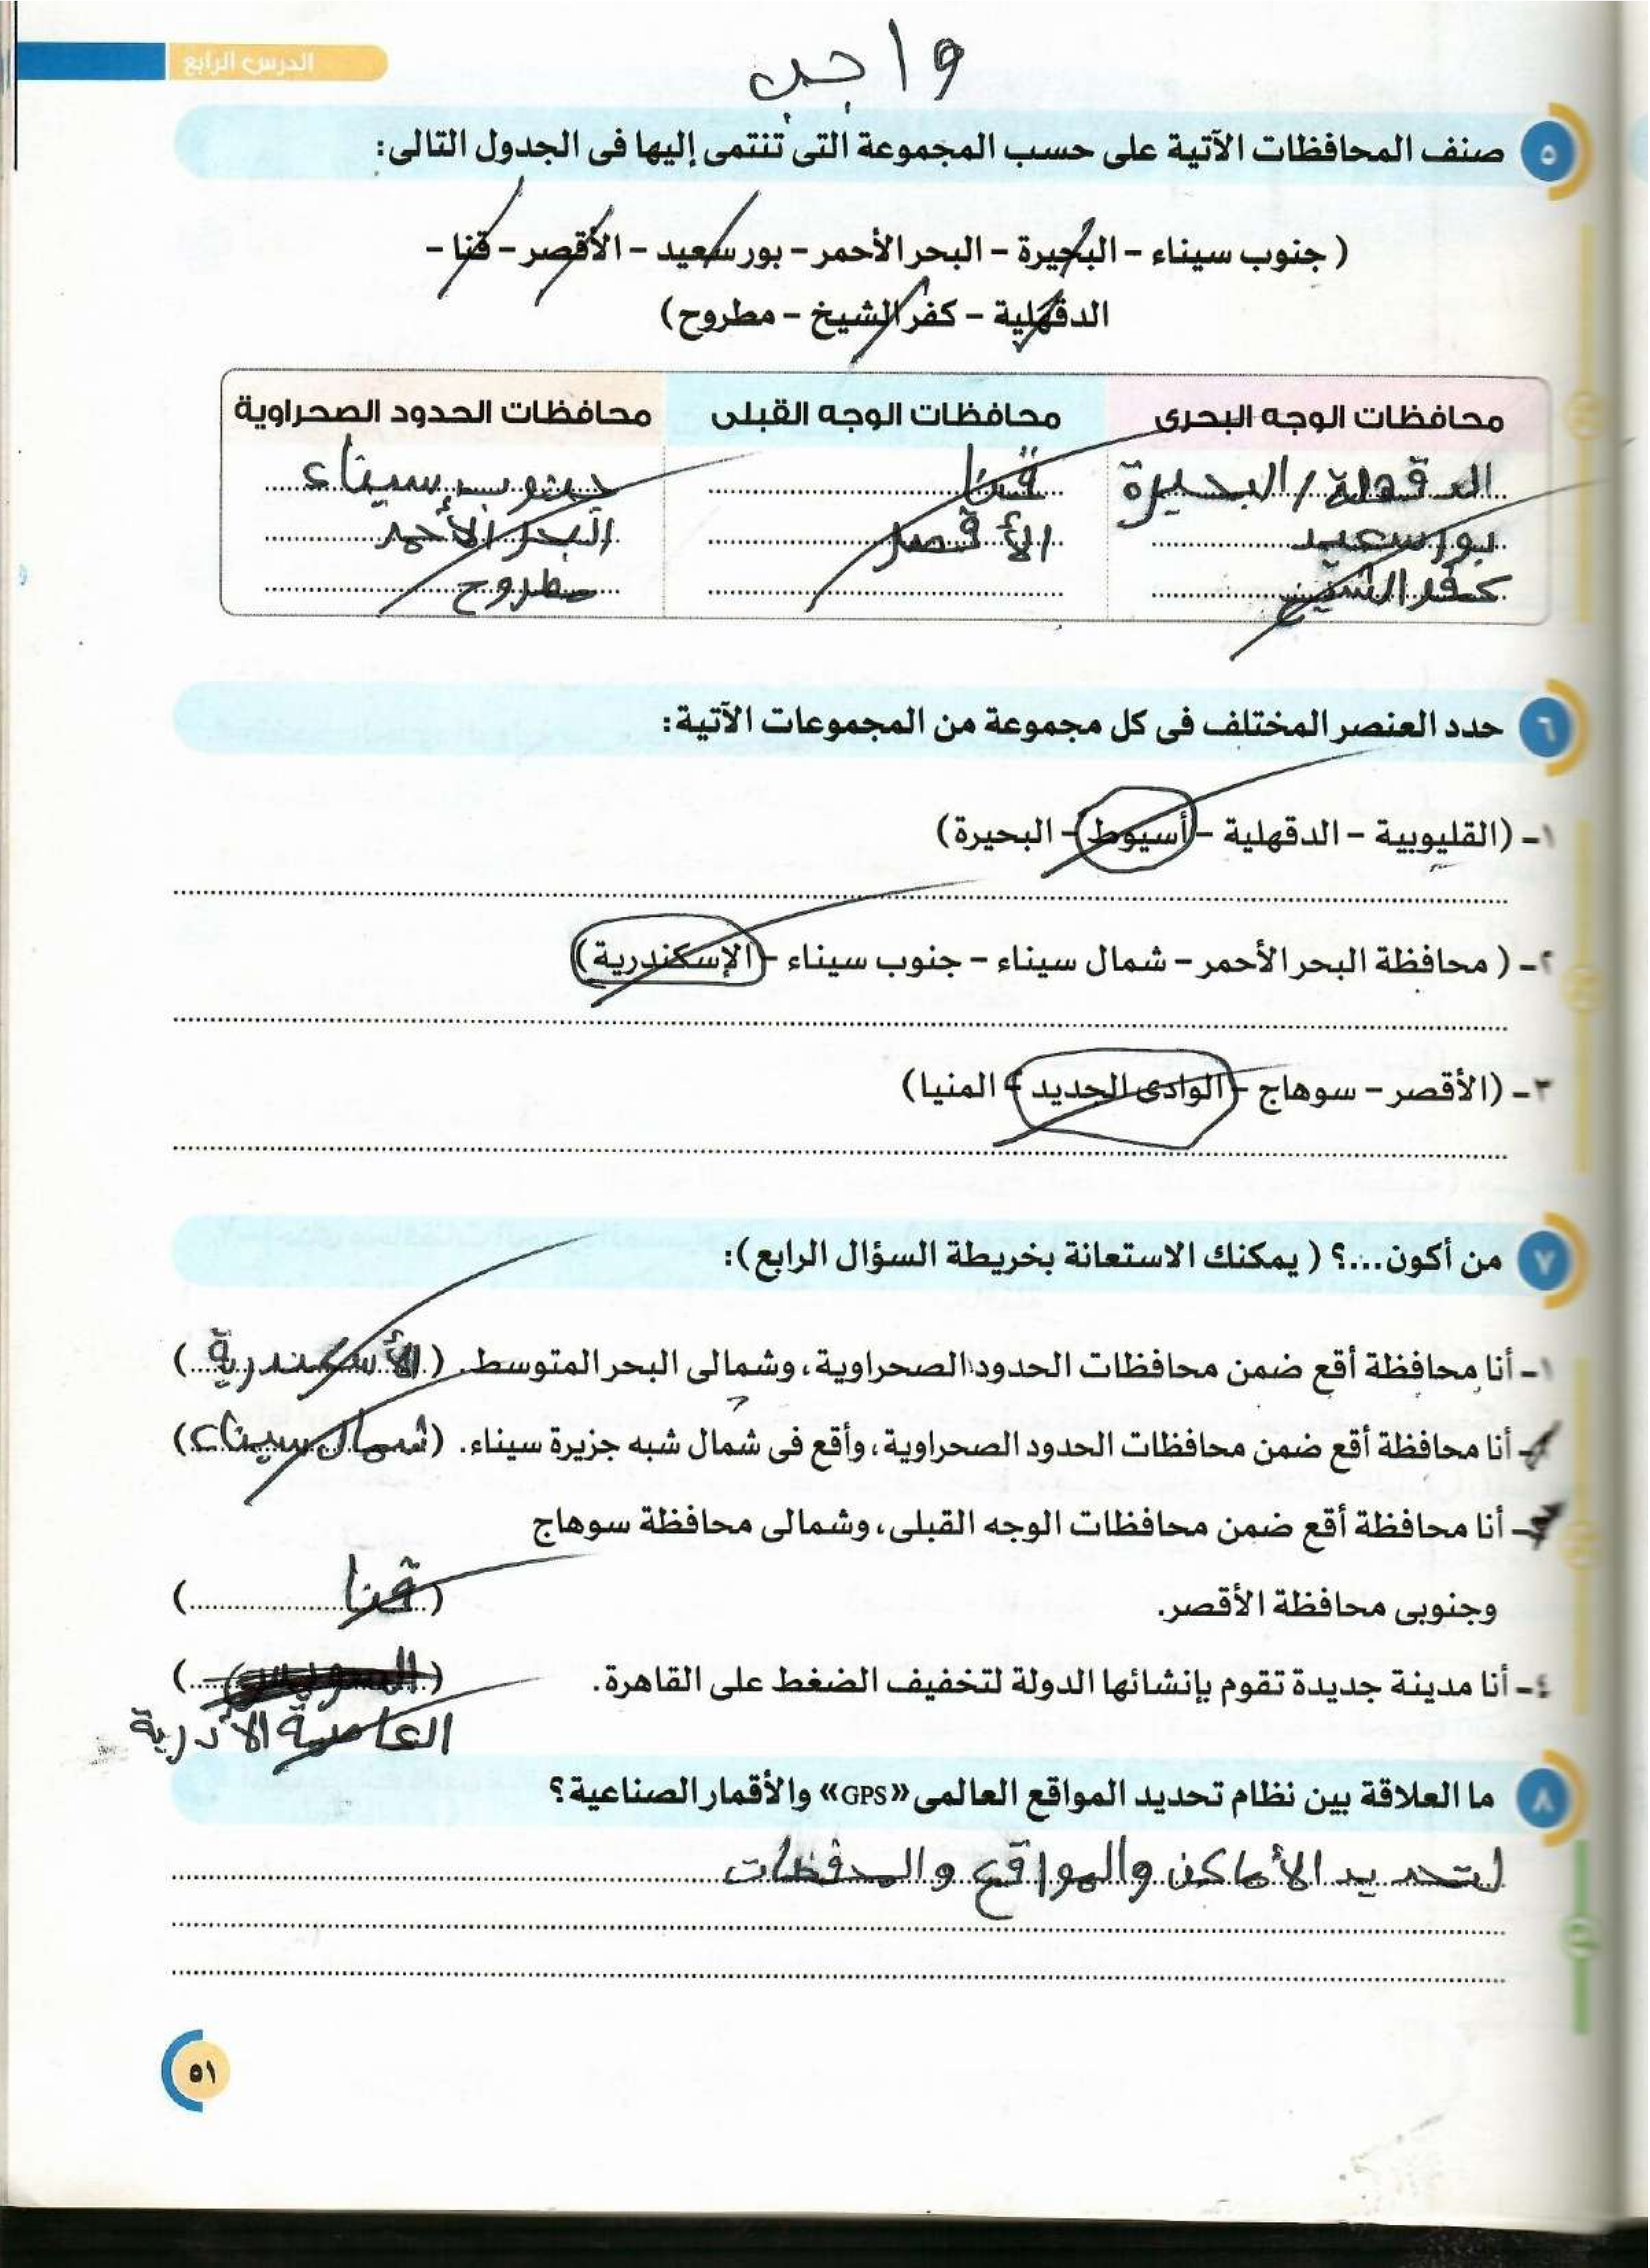 الدرس الرابع
واجب
٥ صنف المحافظات الآتية على حسب المجموعة التى تنتمى إليها فى الجدول التالى:
( جنوب سيناء – البحيرة – البحر الأحمر – بورسعيد – الأقصر – قنا –
الدقهلية – كفر الشيخ – مطروح)
محافظات الوجه البحرى محافظات الوجه القبلى محافظات الحدود الصحراوية
الدقهلة / البحيرة قنا جنوب سيناء
بورسعيد الأقصر البحر الأحمر
كفر الشيخ مطروح
٦ حدد العنصر المختلف فى كل مجموعة من المجموعات الآتية:
١- (القليوبية – الدقهلية – أسيوط – البحيرة)
٢- ( محافظة البحر الأحمر – شمال سيناء – جنوب سيناء – الإسكندرية)
٣- (الأقصر – سوهاج – الوادى الجديد – المنيا)
٧ من أكون...؟ ( يمكنك الاستعانة بخريطة السؤال الرابع):
١- أنا محافظة أقع ضمن محافظات الحدود الصحراوية، وشمالى البحر المتوسط. (الأسكندرية)
أنا محافظة أقع ضمن محافظات الحدود الصحراوية، وأقع فى شمال شبه جزيرة سيناء. (شمال سيناء)
أنا محافظة أقع ضمن محافظات الوجه القبلى، وشمالى محافظة سوهاج
وجنوبى محافظة الأقصر. (قنا)
٤- أنا مدينة جديدة تقوم بإنشائها الدولة لتخفيف الضغط على القاهرة. (السويس)
العاصمة الأدرية
٨ ما العلاقة بين نظام تحديد المواقع العالمى «GPS» والأقمار الصناعية؟
لتحديد الأماكن والمواقع والمحفظات
٥١